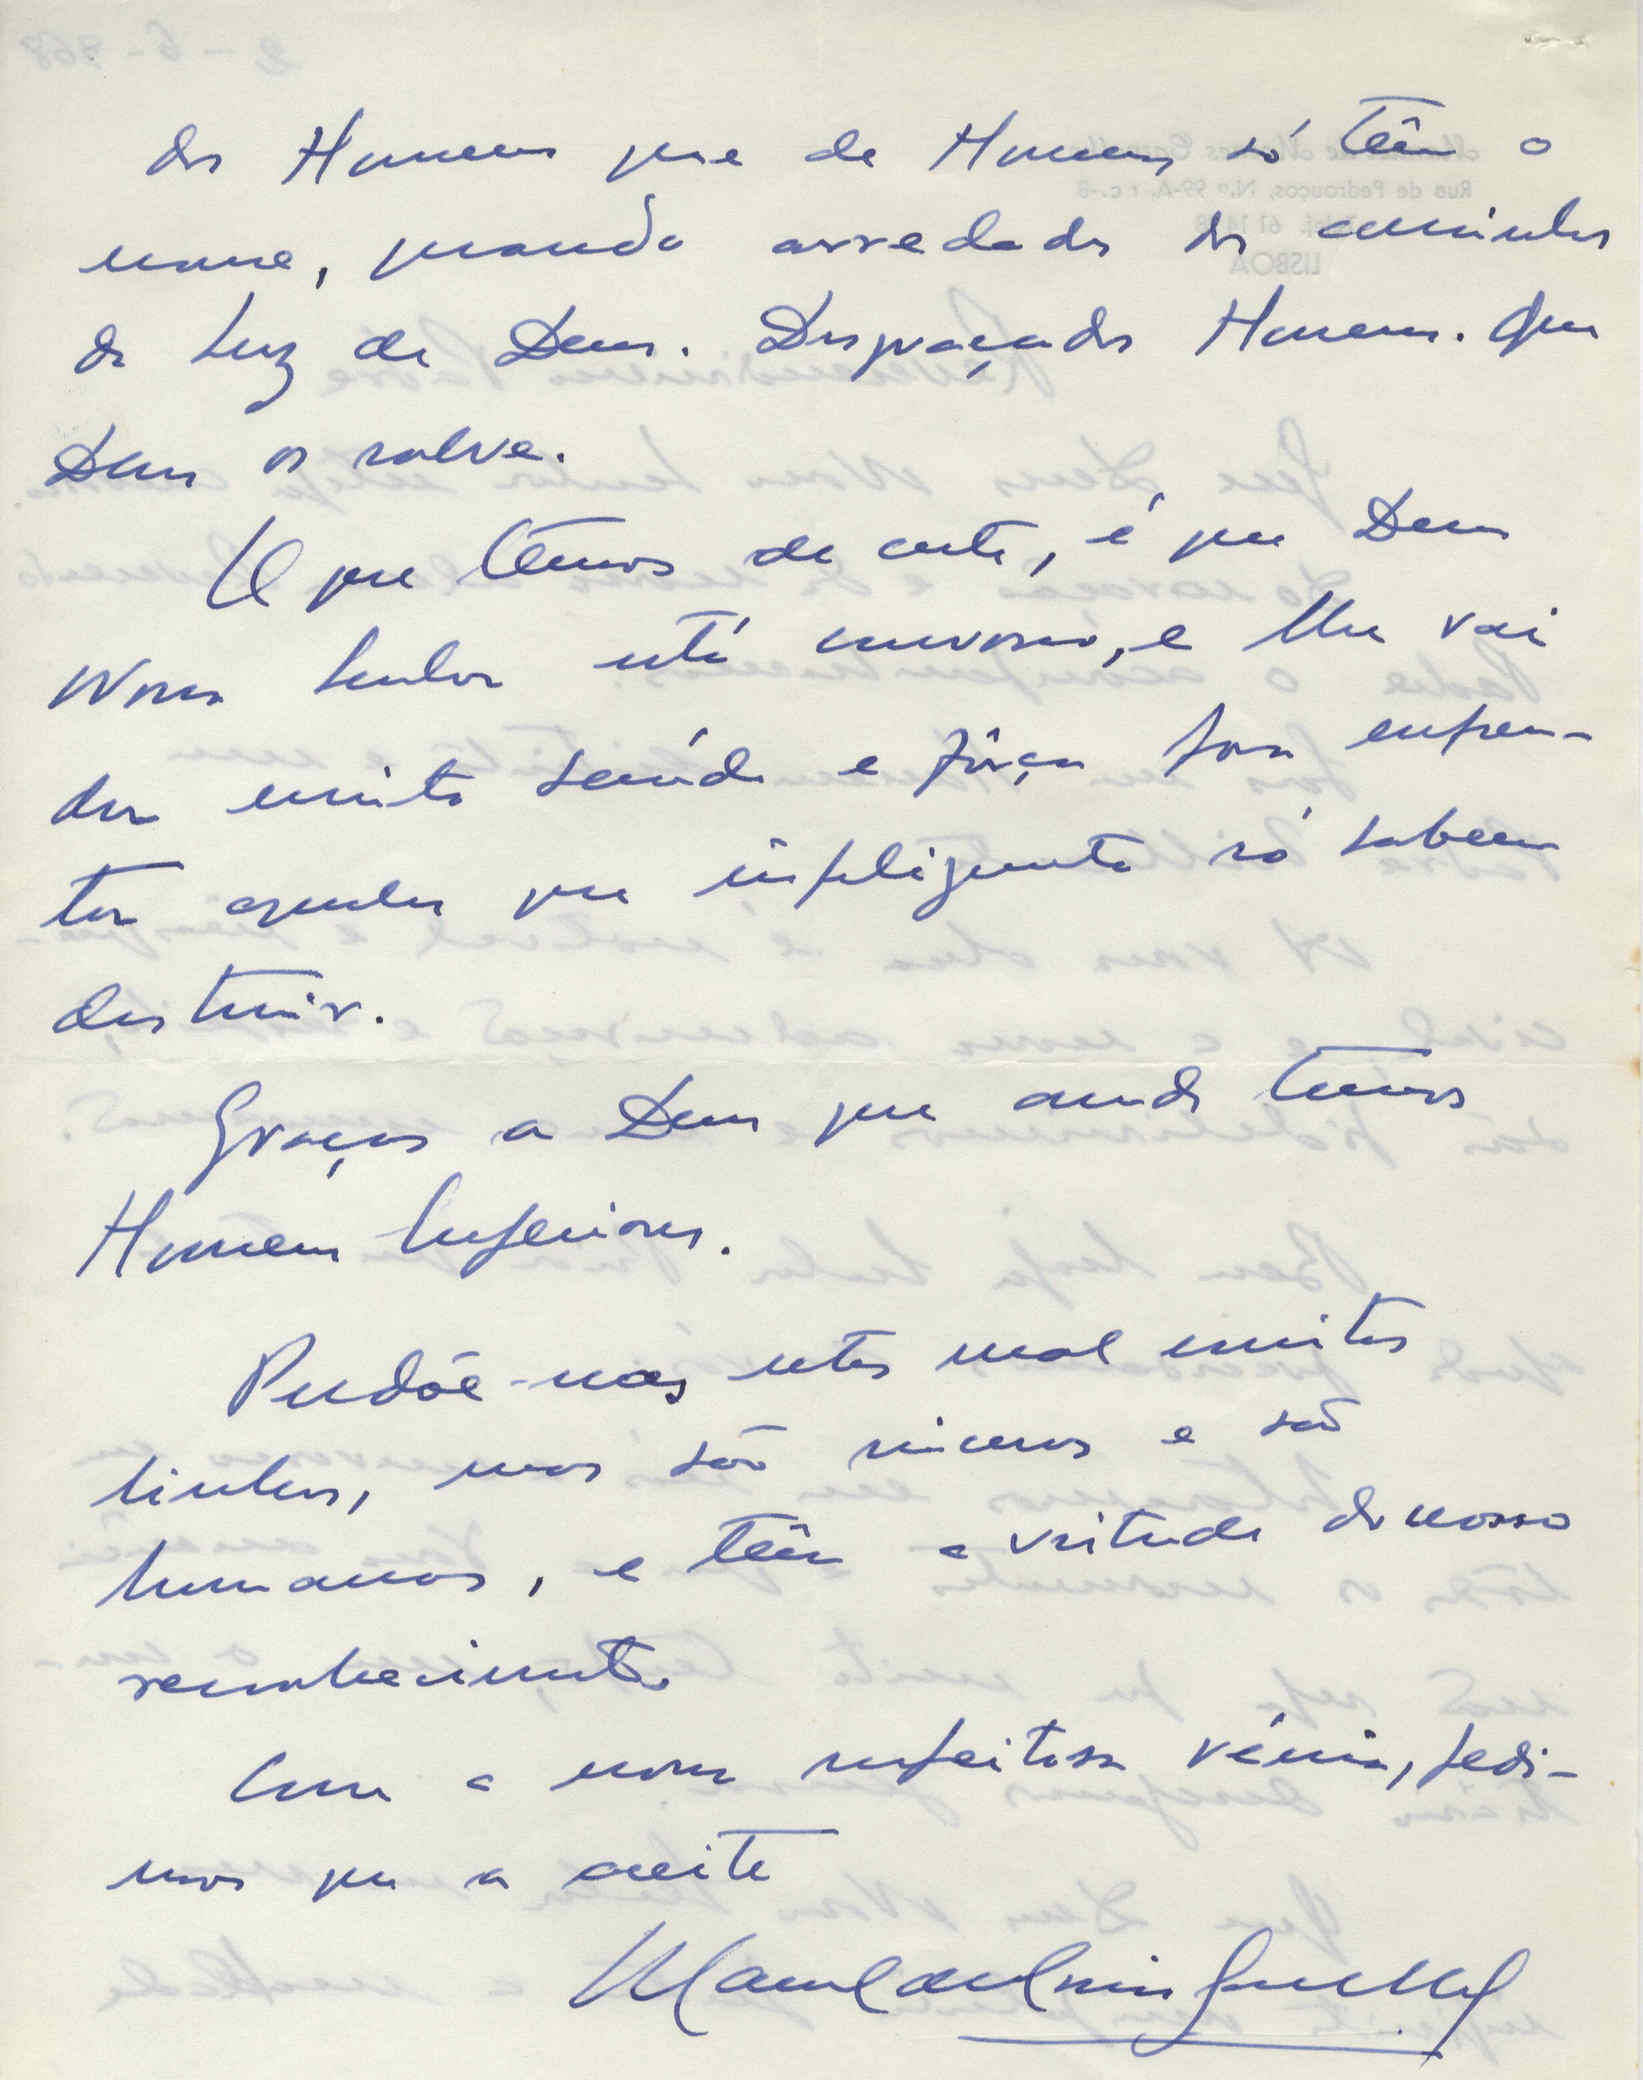 dos Homens que de Homens só têm o
nome, quando arredados dos caminhos
da Luz de Deus. Desgraçados Homens. Que
Deus os salve.
O que temos de certo, é que Deus
Nosso Senhor está connosco, e lhe vai
dar muita saúde e fôrça para enfren-
tar aqueles que infelizmente só sabem
destruir.
Graças a Deus que ainda temos
Homens Superiores.
Perdõe-nos estas mal escritas
linhas, mas são sinceras e são
humanas, e têm a virtude do nosso
reconhecimento.
Com a nossa respeitosa vénia, pedi-
mos que a aceite
Manuel